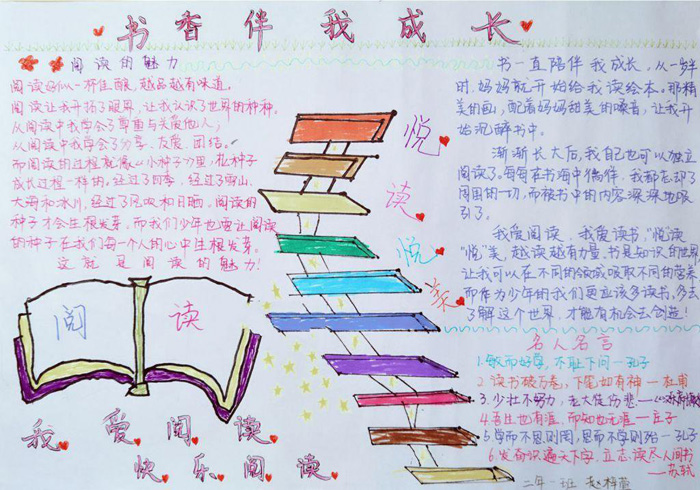 书香伴我成长
阅读的魅力
阅读好似一杯佳酿，越品越有味道。
阅读让我开拓了眼界，让我认识了世界的种种。
从阅读中我学会了尊重与关爱他人；
从阅读中我学会了分享、友爱、团结。
而阅读的过程就像《小种子》里，粒种子
成长过程一样的。经过了四季，经过了雪山、
大海和冰川，经过了风吹和日晒，阅读的
种子才会生根发芽。而我们少年也要让阅读
的种子在我们每一个人的心中生根发芽。
这就是阅读的魅力！
悦
读
悦
美
书一直陪伴我成长，从一岁半
时，妈妈就开始给我读绘本。那精
美的画，配着妈妈甜美的嗓音，让我开
始沉醉书中。
渐渐长大后，我自己也可以独立
阅读了。每每在书海中徜徉，我都忘却了
周围的一切，而被书中的内容深深地吸
引了。
我爱阅读，我爱读书，“悦读
“悦”美，越读越有力量。书是知识的世界
让我可以在不同的领域吸取不同的营养
而作为少年的我们更应该多读书，多去
了解这个世界，才能有机会去创造！
名人名言
1.敏而好学，不耻下问—孔子
2.读书破万卷，下笔如有神—杜甫
3.少壮不努力，老大徒伤悲—
4.吾生也有涯，而知也无涯—庄子
5.学而不思则罔，思而不学则殆—孔子
6.发奋识遍天下字，立志读尽人间书
—苏轼
二年一班 赵梓萱
阅 读
我爱阅读
快乐阅读